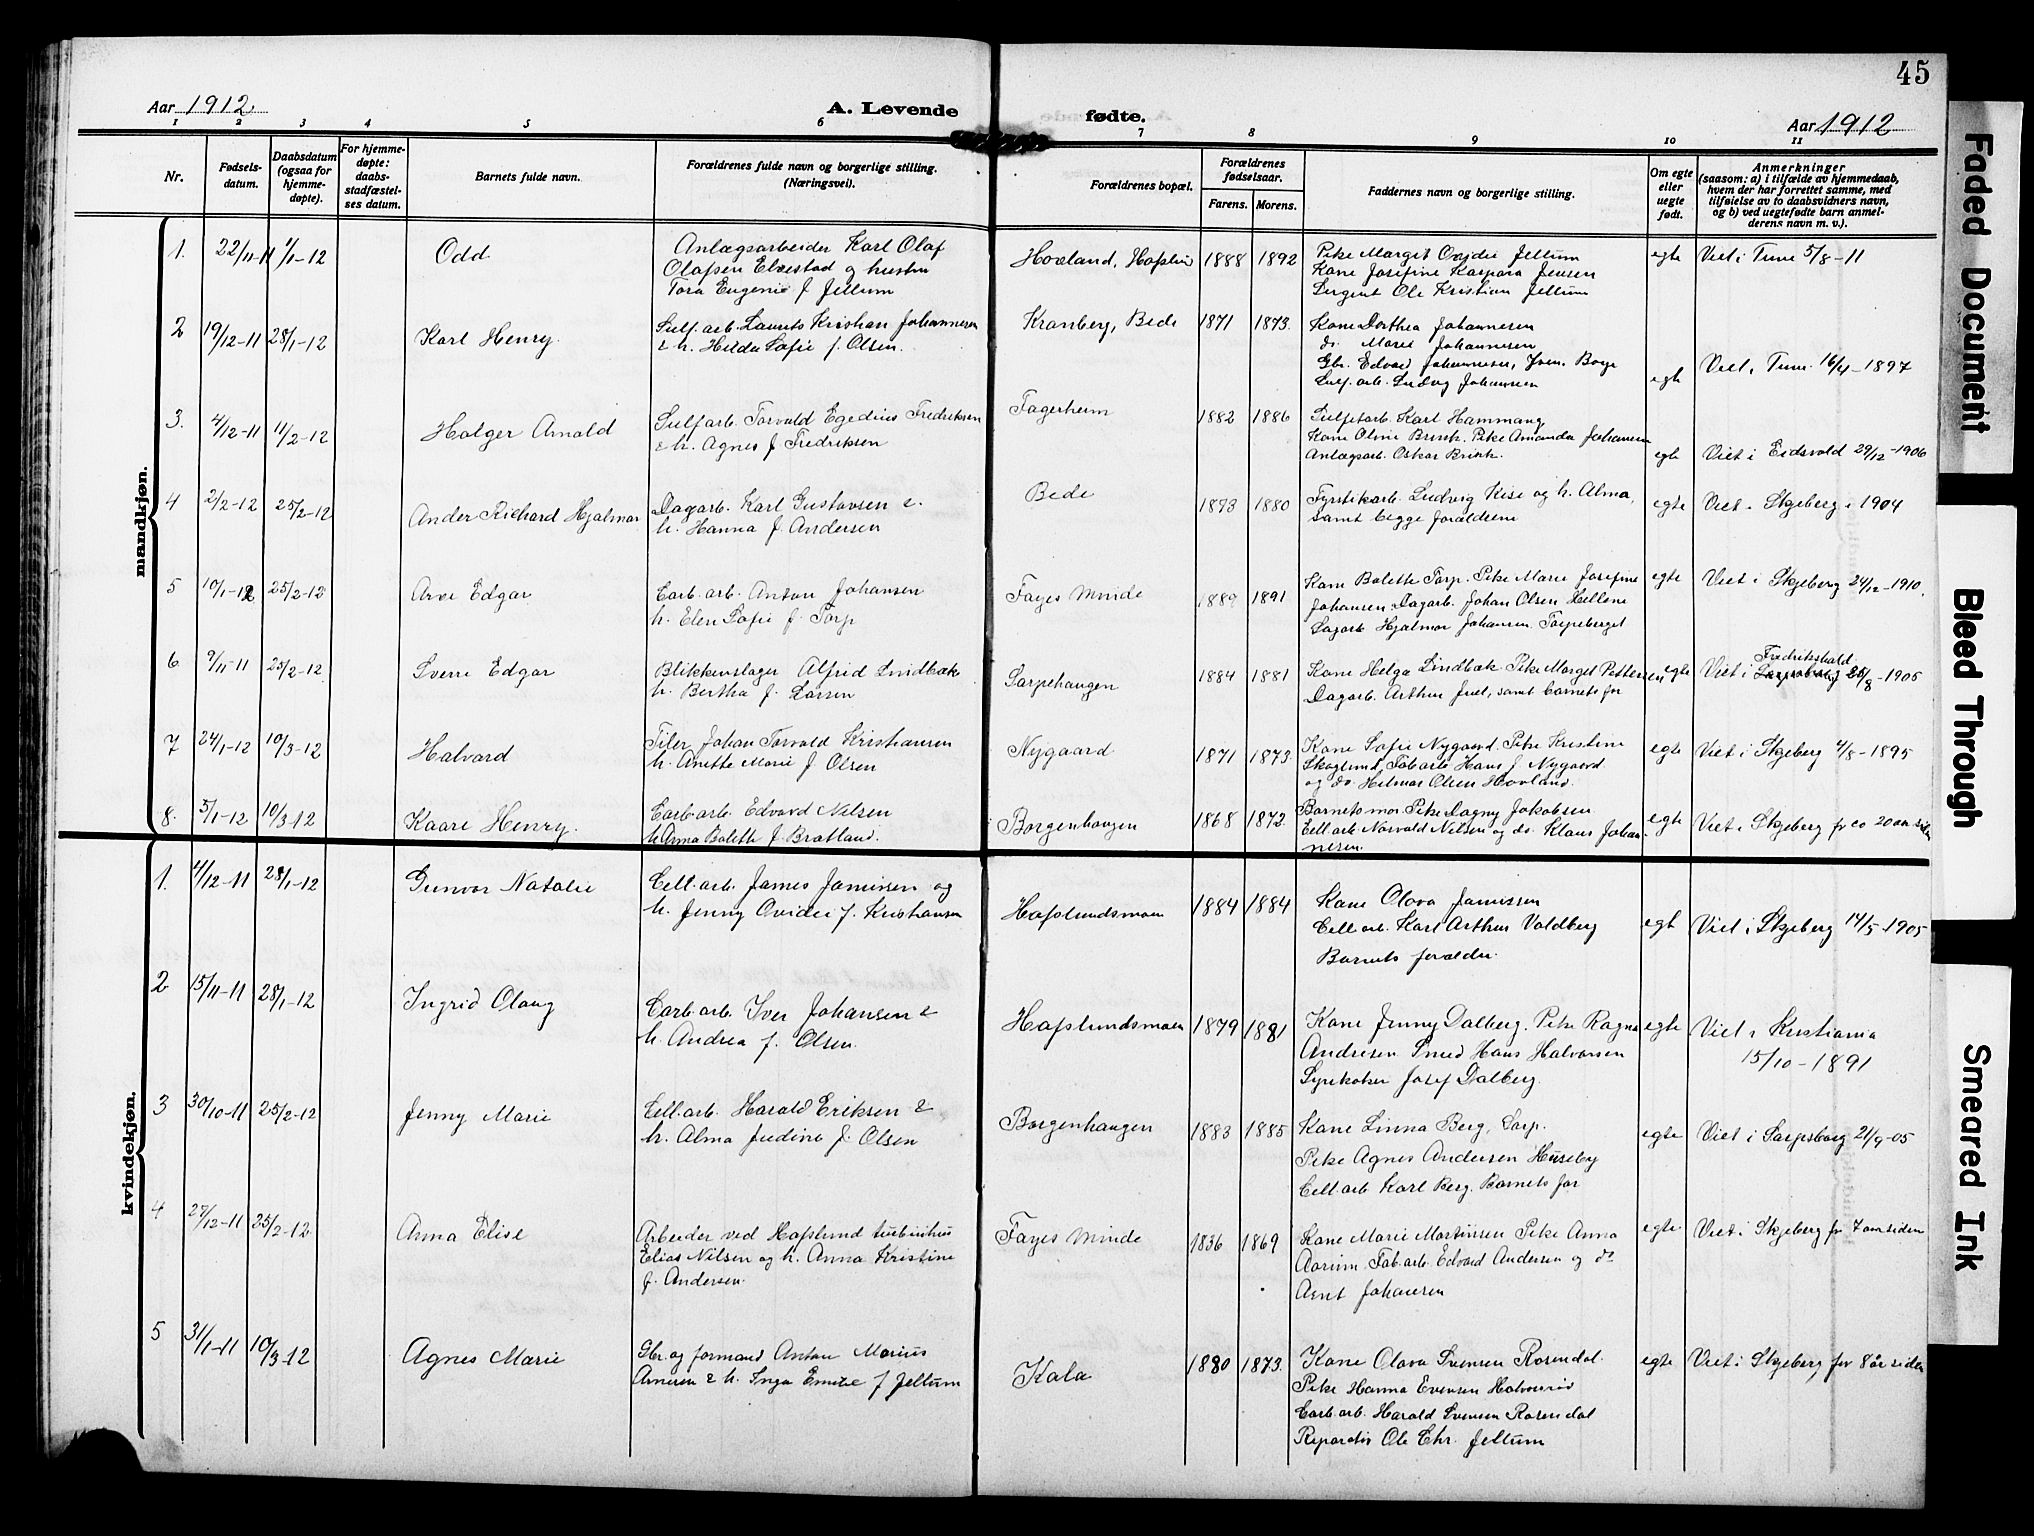 45
Aar 1912
A. Levende
fødte.
Aar 1912
1 2 3 4 5 6 7 8 9 10 11
Nr.
Fødsels-
datum.
Daabsdatum
(ogsaa for
hjemme-
døpte).
For hjemme-
døpte:
daabs-
stadfæstel-
ses datum.
Barnets fulde navn.
Forældrenes fulde navn og borgerlige stilling.
(Næringsvei).
Forældrenes bopæl.
Forældrenes
fødselsaar.
Farens. Morens.
Faddernes navn og borgerlige stilling.
Om egte
eller
uegte
født.
Anmerkninger
(saasom: a) i tilfælde av hjemmedaab,
hvem der har forrettet samme, med
tilføielse av to daabsvidners navn,
og b) ved uegtefødte barn anmel-
derens navn m. v.).
mandkjøn.
1. 22/11-11 1/1-12 Odd
Anlægsarbeider Karl Olaf
Olafsen Elvestad og hustru
Tora Eugenie f. Jellum
Hovland, Hafslund 1888 1892
Pike Margit Ovidie Jellum
Kone Josefine Kaspara Jensen
Sergent Ole Kristian Jellum
egte Viet i Tune 5/8-11
2 19/12-11 28/1-12 Karl Henry
Sulf.arb. Laurits Kristian Johannesen
& h. Hilda Sofie f. Olsen.
Kranberg, Bede 1871 1873.
Kone Dorthea Johannesen
do. Marie Johannesen
Gbr. Edvard Johannesen, Borge
Sulf. arb. Ludvig Johannesen
egte Viet i Tune 16/4-1897
3. 4/12-11 11/2-12 Holger Arnold
Sulf arb. Torvald Egedius Fredriksen
& h. Agnes f. Fredriksen
Fagerheim 1882 1886
Sulfitarb. Karl Hammang
Kone Oline Brisk. Pike Amanda Johansen
Anlægsarb. Oskar Brisk.
egte Viet i Eidsvold 29/12-1906
4 2/2-12 25/2-12 Ander Richard Hjalmar
Dagarb. Karl Gustavsen &
h. Hanna f. Andersen
Bede 1873 1880
Fyrstikarb. Ludvig Kise og h. Alma,
samt begge forældrene
egte Viet i Skjeberg i 1904
5 10/1-12 25/2-12 Arve Edgar
Carb. arb. Anton Johansen
h. Elen Sofie f. Torp
Fayes Minde 1889 1891
Kone Bolette Torp. Pike Marie Josefine
Johansen. Dagarb. Johan Olsen Hellene
Sagarb Hjalmar Johansen Torpeberget
egte Viet i Skjeberg 24/12-1910.
6 9/11-11 25/2-12 Sverre Edgar
Blikkenslager Alfrid Lindbæk
h. Bertha f. Larsen
Sarpehaugen 1884 1881
Kone Helga Lindbæk. Pike Marget Pettersen
Dagarb. Arthur Juel, samt barnets far
egte Viet i Fredrikshald 25/8-1905
7 24/1-12 10/3-12 Halvard
Filer Johan Torvald Kristiansen
h. Anette Marie f. Olsen
Nygaard 1871 1873
Kone Sofie Nygaard. Pike Kristine
Skoglund, Fab arb Hans J. Nygaard
og do. Hilmar Olsen Hovland.
egte Viet i Skjeberg 4/8-1895
8. 5/1-12 10/3-12 Kaare Henry.
Carb arb. Edvard Nilsen
h Anna Bolette f. Bratland.
Borgenhaugen 1868 1872.
Barnets mor. Pike Dagny Jakobsen
Cell arb Norvald Nilsen og do. Klaus Johan-
nesen.
egte Viet i Skjeberg for ca 20 aar siden
kvindekjøn.
1. 4/12-11 28/1-12 Gunvor Natalie
Cell. arb. James Jamissen og
h. Jenny Ovidie f. Kristiansen
Hafslundsmoen 1884 1884
Kone Olava Jamissen
Cell arb. Karl Arthur Valdberg
Barnets forældre.
egte Viet i Skjeberg 14/5-1905
2 15/11-11 28/1-12 Ingrid Olaug
Carb. arb. Iver Johansen &
h. Andrea f. Olsen.
Hafslundsmoen 1879 1881
Kone Jenny Dalberg. Pike Ragna
Andresen Smed Hans Halvorsen
Syrekoker Josef Dalberg.
egte Viet i Kristiania
15/10-1891
3 30/10-11 25/2-12 Jenny Marie
Cell. arb. Harald Eriksen &
h. Alma Judine f. Olsen
Borgenhaugen 1883 1885
Kone Linna Berg, Sarp.
Pike Agnes Andersen Huseby
Cell arb Karl Berg. Barnets far
egte Viet i Sarpsborg 21/9-05
4 27/12-11 25/2-12 Anna Elise
Arbeider ved Hafslund turbinhus
Elias Nilsen og h. Anna Kristine
f. Andersen.
Fayes Minde 1836 1869
Kone Marie Martinsen Pike Anna
Aarum. Fab. arb. Edvard Andersen og do
Arnt Johansen
egte Viet i Skjeberg for 7 aar siden
5 31/1-11 10/3-12 Agnes Marie
Gbr. og formand Anton Marius
Arnesen & h. Inga Emilie f Jellum
Kala 1880 1873.
Kone Olava Svensen Rosendal.
Pike Hanna Evensen Halvorsrød
Carb. arb. Harald Svensen Rosendal
Reparatør Ole Chr. Jellum
egte Viet i Skjeberg for 8 år siden
Faded Document
Bleed Through
Smeared Ink